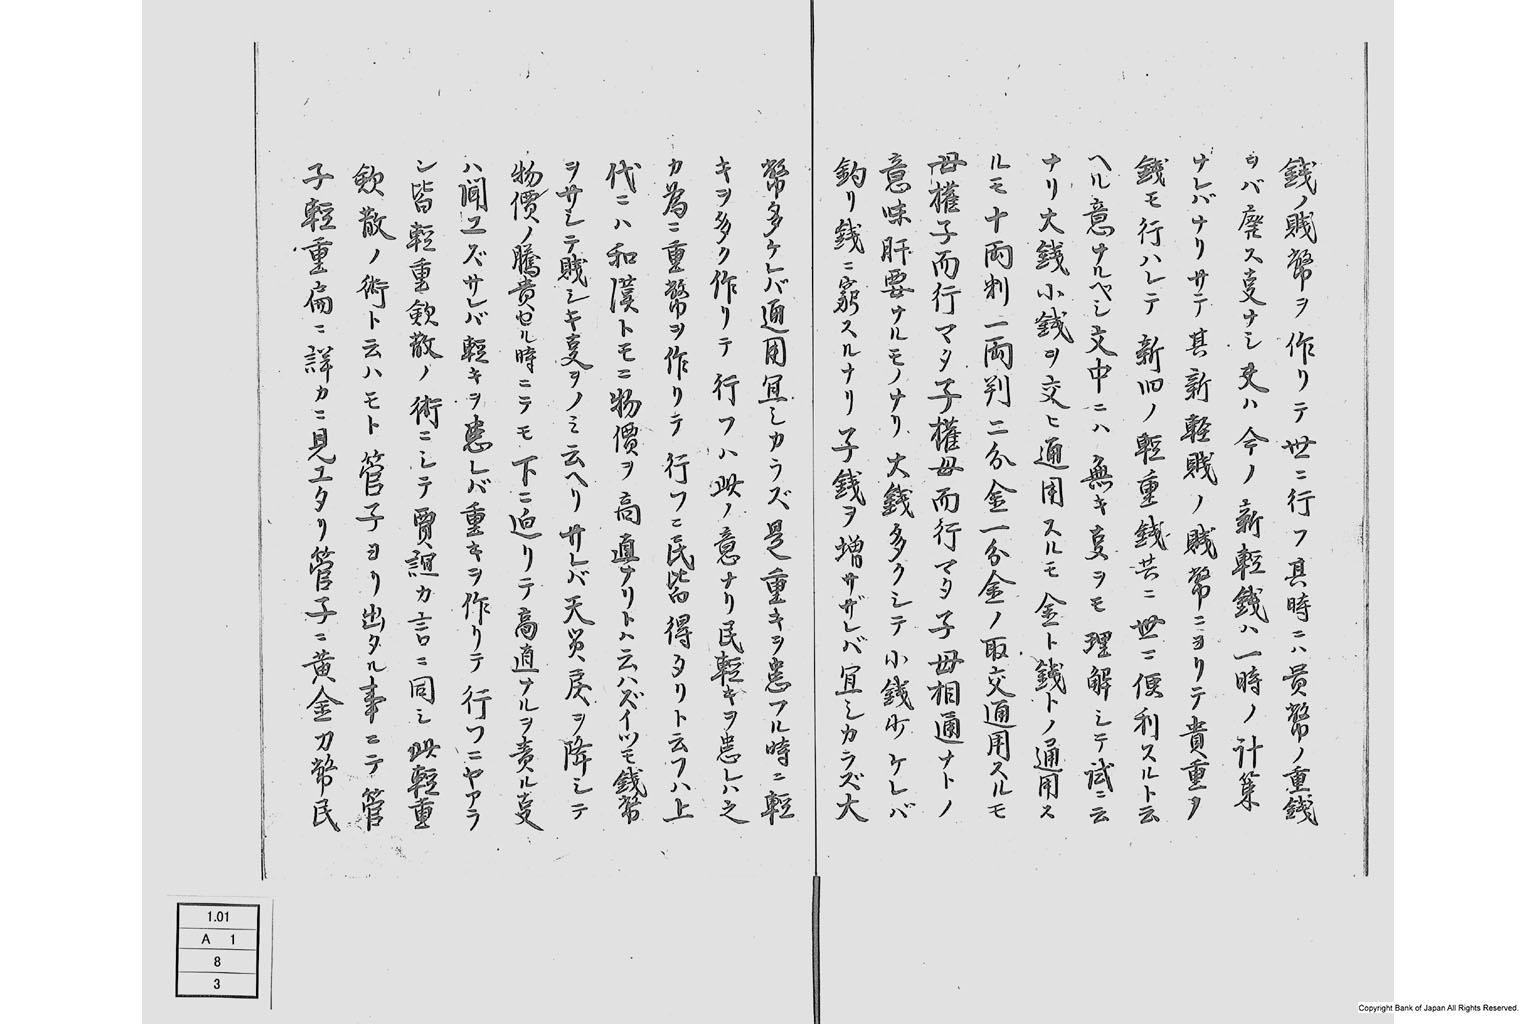 銭ノ賎幣ヲ作リテ世ニ行フ其時ニハ貴幣ノ重銭
ヲバ廃ス叓ナシ又ハ今ノ新軽銭ハ一時ノ計策
ナレバナリサテ其新軽賎ノ賎幣ニヨリテ貴重ノ
銭モ行ハレテ新旧ノ軽重銭共ニ世ニ便利スルト云
ヘル意ナルベシ文中ニハ無キ叓ヲモ理解シテ試ニ云
ナリ大銭小銭ヲ交ヒ通用スルモ金ト銭トノ通用ス
ルモ十両判一両判二分金一分金ノ取交通用スルモ
母權子而行マタ子權母而行マタ子母相通ナトノ
意味肝要ナルモノナリ大銭多クシテ小銭少ケレバ
釣リ銭ニ窮スルナリ子銭ヲ増サザレバ宜シカラズ大
幣多ケレバ通用宜シカラズ是重キヲ患フル時ニ軽
キヲ多ク作リテ行フハ此ノ意ナリ民軽キヲ患レハ之
カ為ニ重幣ヲ作リテ行フニ民皆得タリト云フハ上
代ニハ和漢トモニ物價ヲ高直ナリトハ云ハズイツモ銭幣
ヲサシテ賎シキ叓ヲノミ云ヘリサレバ天災戻ヲ降シテ
物價ノ騰貴セル時ニテモ下ニ迫リテ高直ナルヲ責ル叓
ハ聞ユズサレバ軽キヲ患レバ重キヲ作リテ行フニヤアラ
シ皆軽重歛散ノ術ニシテ賈誼カ言ニ同シ此軽重
歛散ノ術ト云ハモト管子ヨリ出タル事ニテ管
子軽重扁ニ詳カニ見ユタリ管子ニ黄金刀幣民
1.01
A 1
8
3
Copyright Bank of Japan All Rights Reserved.